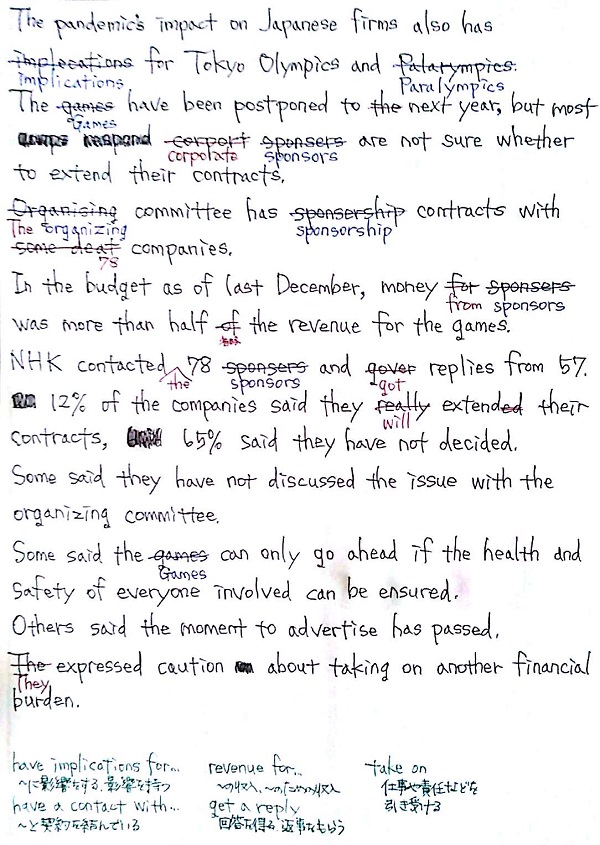 The pandemic's impact on Japanese firms also has
implecations for Tokyo Olympics and Palarympics.
implications Paralympics
The games have been postponed to the next year, but most
Games
respond corport sponsers are not sure whether
corpolate sponsors
to extend their contracts.
Organising committee has sponsership contracts with
The organizing sponsorship
some deat companies.
78
In the budget as of last December, money for sponsers
from sponsors
was more than half of the revenue for the games.
NHK contacted 78 sponsers and gover replies from 57.
the sponsors got
12% of the companies said they really extended their
will
contracts, 65% said they have not decided.
Some said they have not discussed the issue with the
organizing committee.
Some said the games can only go ahead if the health and
Games
safety of everyone involved can be ensured.
Others said the moment to advertise has passed.
The expressed caution about taking on another financial
They
burden.
have implications for... revenue for... take on
〜に影響をする、影響を持つ 〜の収入、〜のための収入 仕事や責任などを
have a contact with... get a reply 引き受ける
〜と契約を結んでいる 回答を得る、返事をもらう